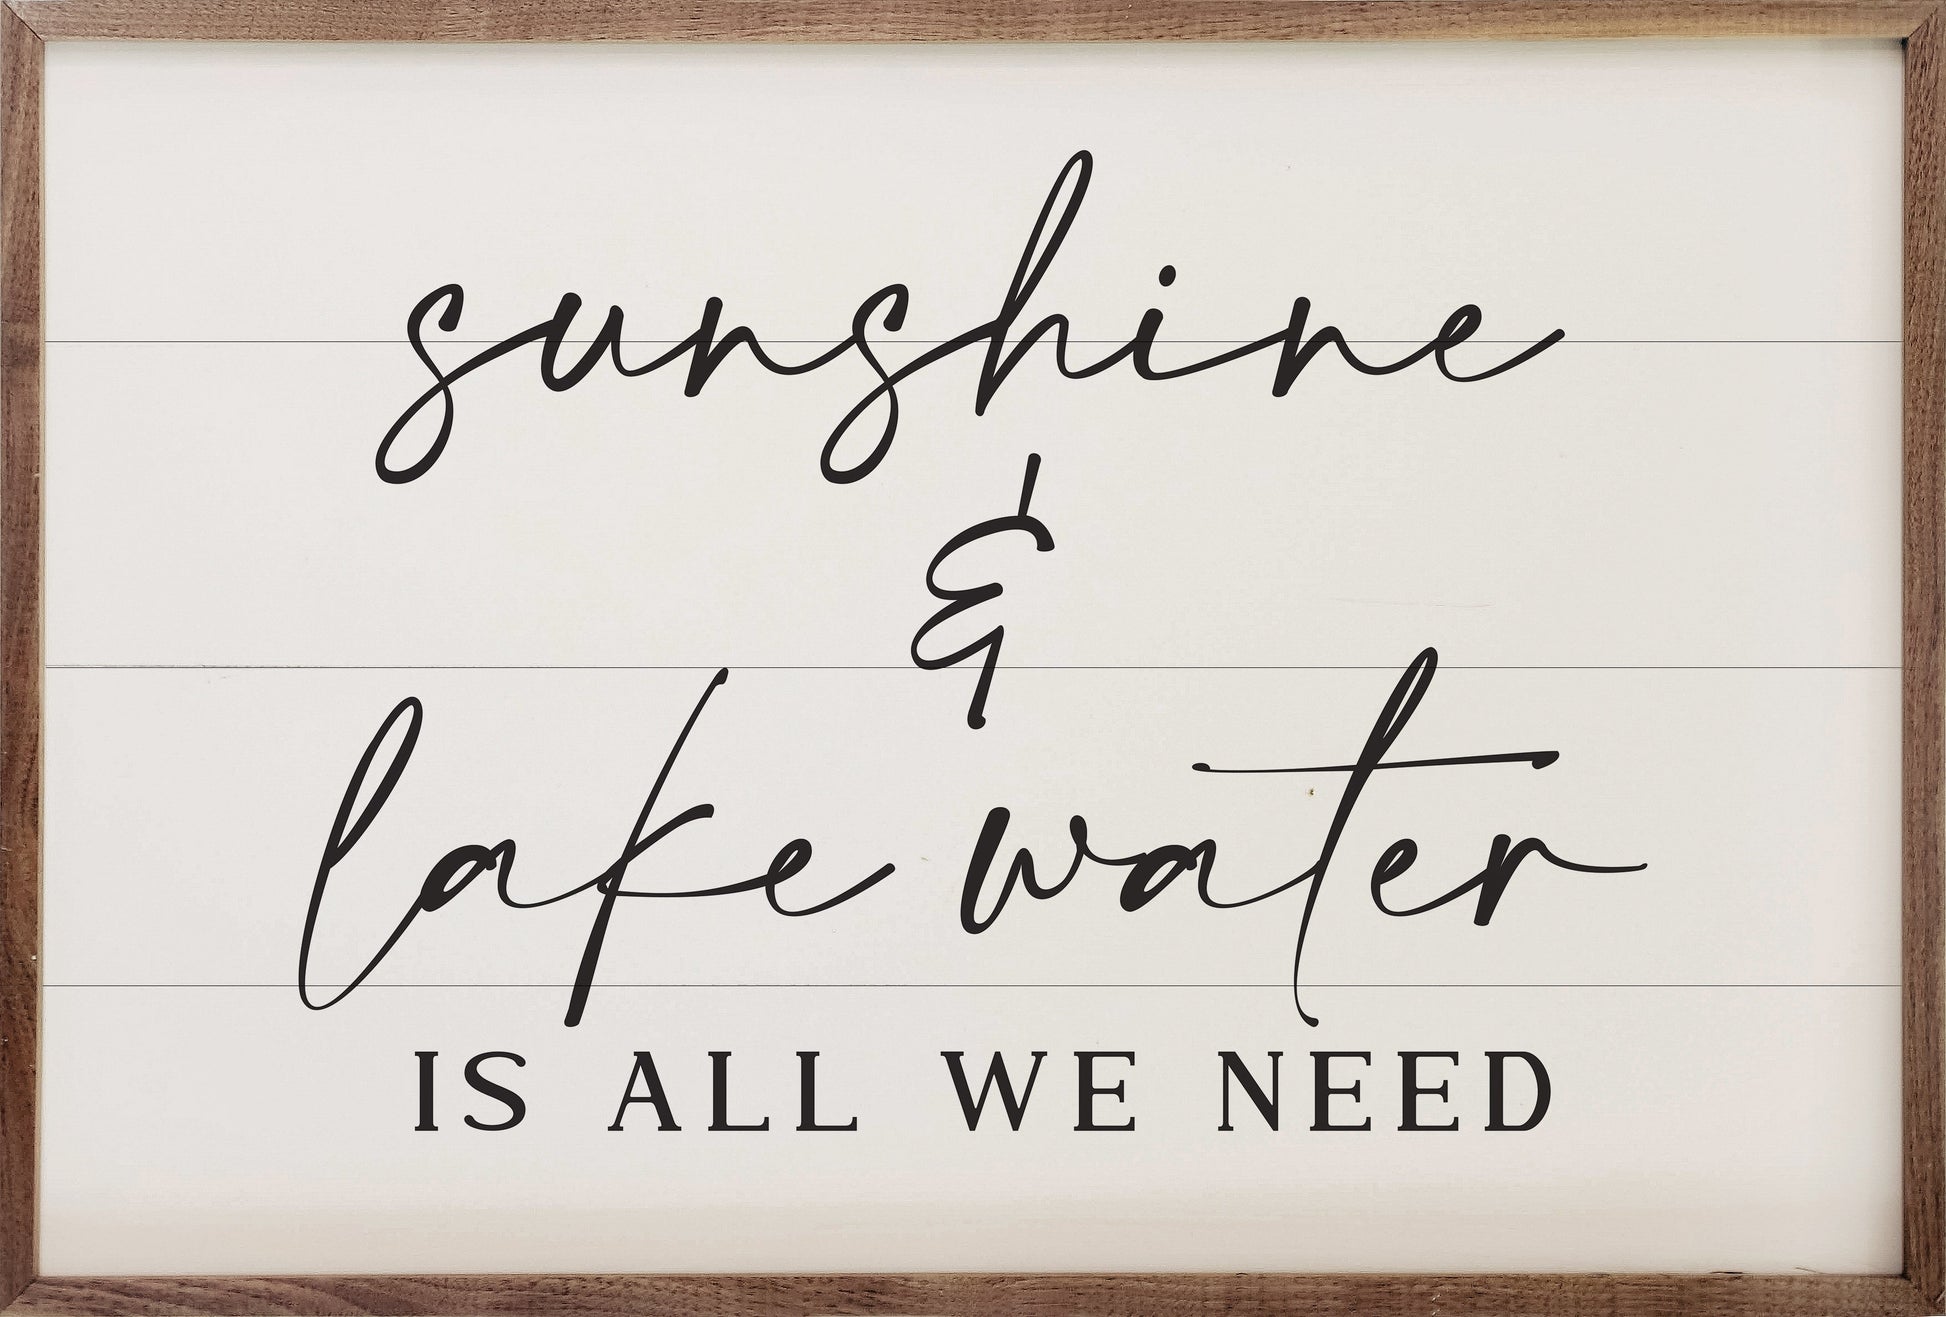 sunshine
&
lake water
IS ALL WE NEED